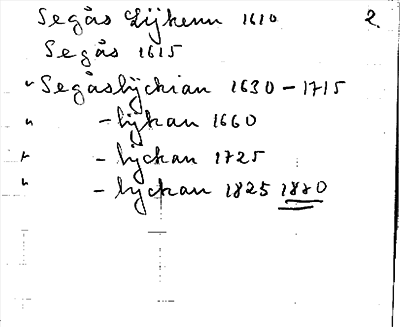 Segås Lijkenn 1610 2.
Segås 1615
" Segåslyckian 1630 - 1715
" - lykan 1660
" - lyckan 1725
" - lyckan 1825 1880